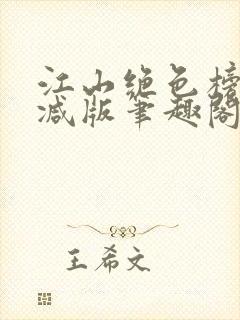 江山绝色榜
减版笔趣阁
王希文